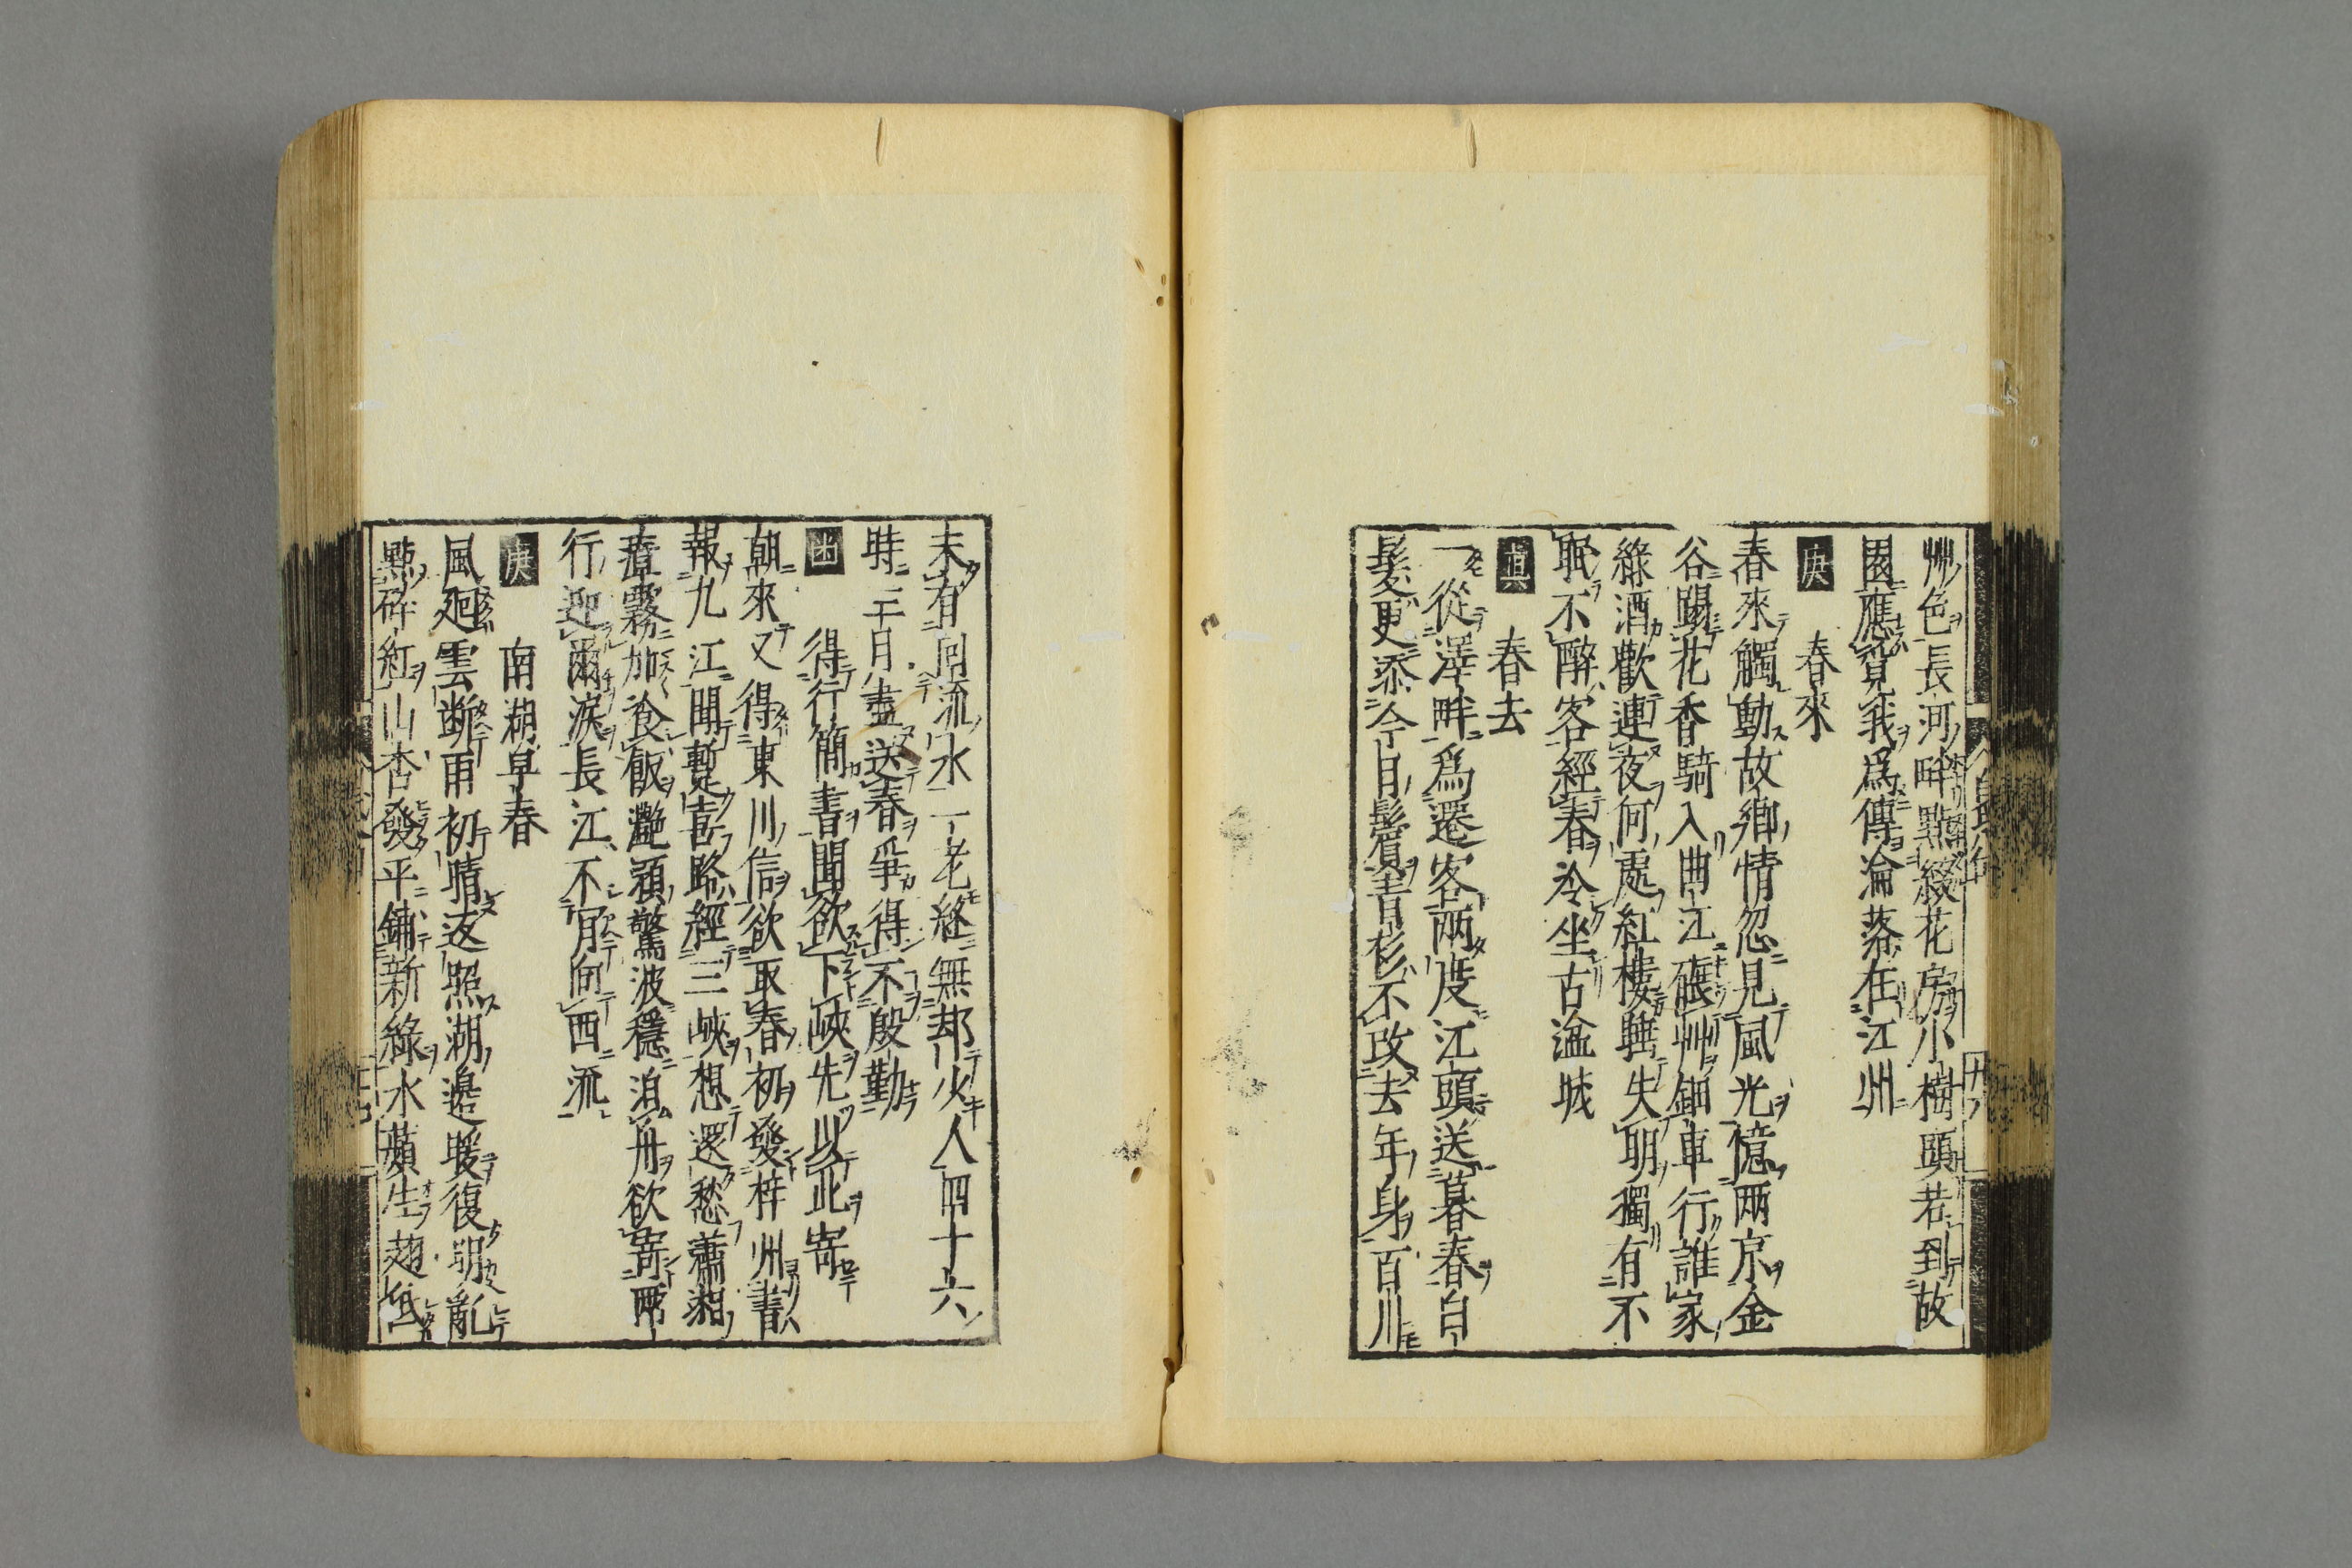 艸色長河畔點綴花房小樹頭若到故
園應覓我爲傳淪落在江州
庚 春來
春來觸動故鄉情忽見風光憶兩京金
谷蹋花香騎入曲江碾艸鈿車行誰家
綠酒歡連夜何處紅樓睡失明獨有不
眠不醉客經春冷坐古湓城
眞 春去
一從澤畔爲遷客兩度江頭送暮春白
髮更添今日鬢青衫不改去年身百川
未有囘流水一老終無却少人四十六
時三月盡送春爭得不殷勤
得行簡書聞欲下峽先以此寄
朝來又得東川信欲取春初發梓州書
報九江聞暫喜路經三峽想還愁蕭湘
瘴霧加飡飯灔澦驚波穩泊舟欲寄兩
行迎爾淚長江不肎向西流
庚 南湖早春
風廻雲斷雨初晴返照湖邊暖復明亂
點碎紅山杏發平鋪新綠水蘋生翅低